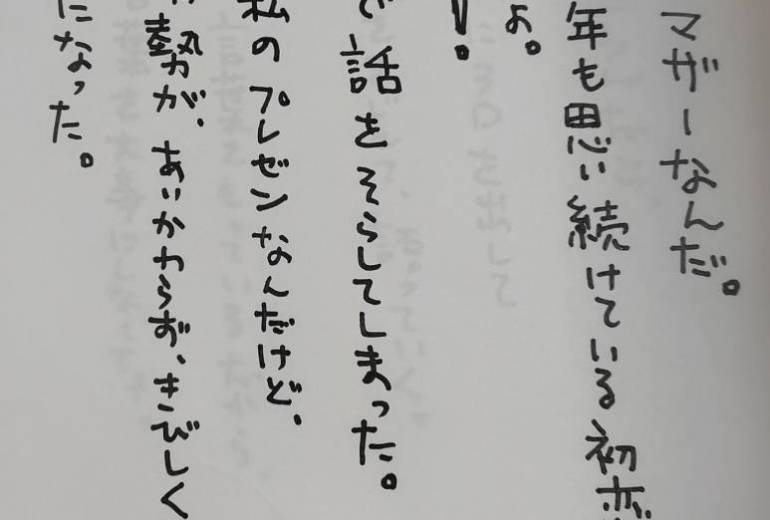 マザーなんだ。
年も思い続けている初恋
よ。
!
で話をそらしてしまった。
私のプレゼンなんだけど、
勢が、あいかわらず、きびしく
になった。